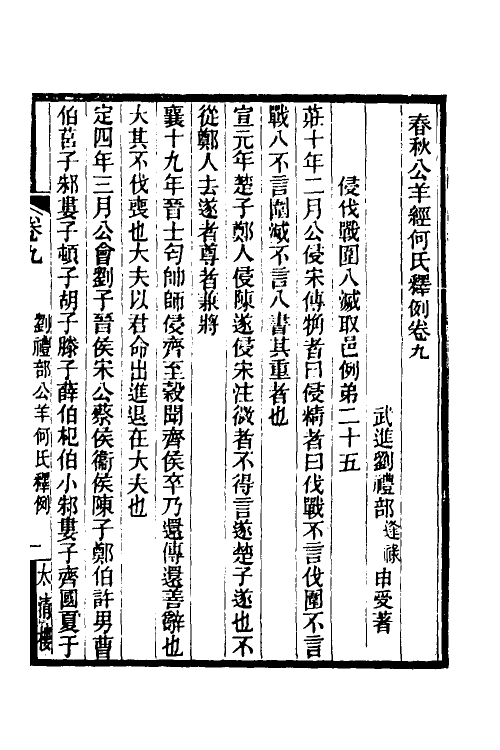 春秋公羊經何氏釋例卷九
武進劉禮部逢祿申受著
侵伐戰圍入滅取邑例第二十五
莊十年二月公侵宋傳觕者曰侵精者曰伐戰不言伐圍不言
戰入不言圍滅不言入書其重者也
宣元年楚子鄭人侵陳遂侵宋注微者不得言遂楚子遂也不
從鄭人去遂者尊者兼將
襄十九年晉士匄帥師侵齊至穀聞齊侯卒乃還傳還善辭也
大其不伐喪也大夫以君命出進退在大夫也
定四年三月公會劉子晉侯宋公蔡侯衞侯陳子鄭伯許男曹
伯莒子邾婁子頓子胡子滕子薛伯杞伯小邾婁子齊國夏于
卷九
劉禮部公羊何氏釋例
一
太清樓